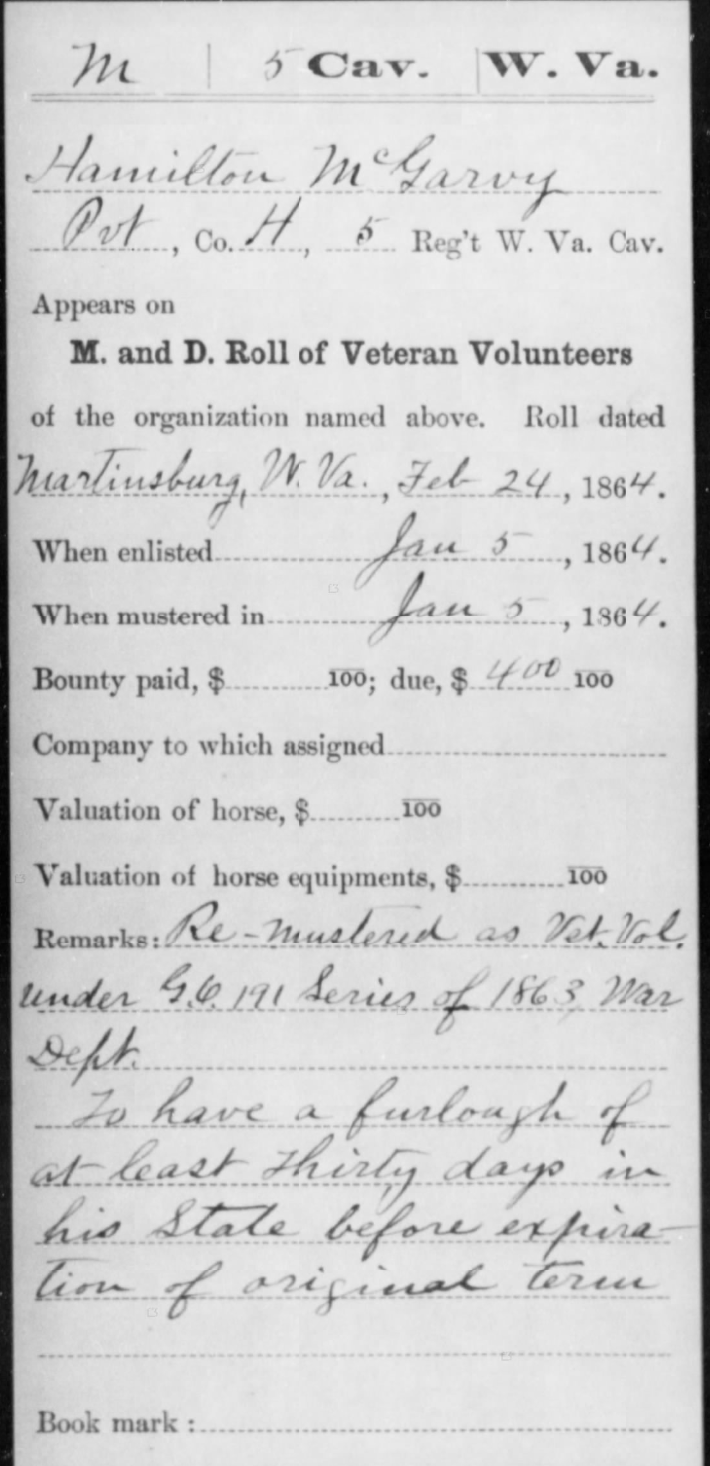 M | 5 Cav. | W. Va.
Hamilton McGarvy
Pvt, Co. H, 5 Reg't W. Va. Cav.
Appears on
M. and D. Roll of Veteran Volunteers
of the organization named above. Roll dated
Martinsburg, W. Va., Feb 24, 1864.
When enlisted Jan 5, 1864.
When mustered in Jan 5, 1864.
Bounty paid, $ 100; due, $ 400 100
Company to which assigned
Valuation of horse, $ 100
Valuation of horse equipments, $ 100
Remarks: Re-mustered as Vet. Vol.
under G.O. 191 Series of 1863, War
Dept.
To have a furlough of
at least thirty days in
his State before expira-
tion of original term
Book mark: